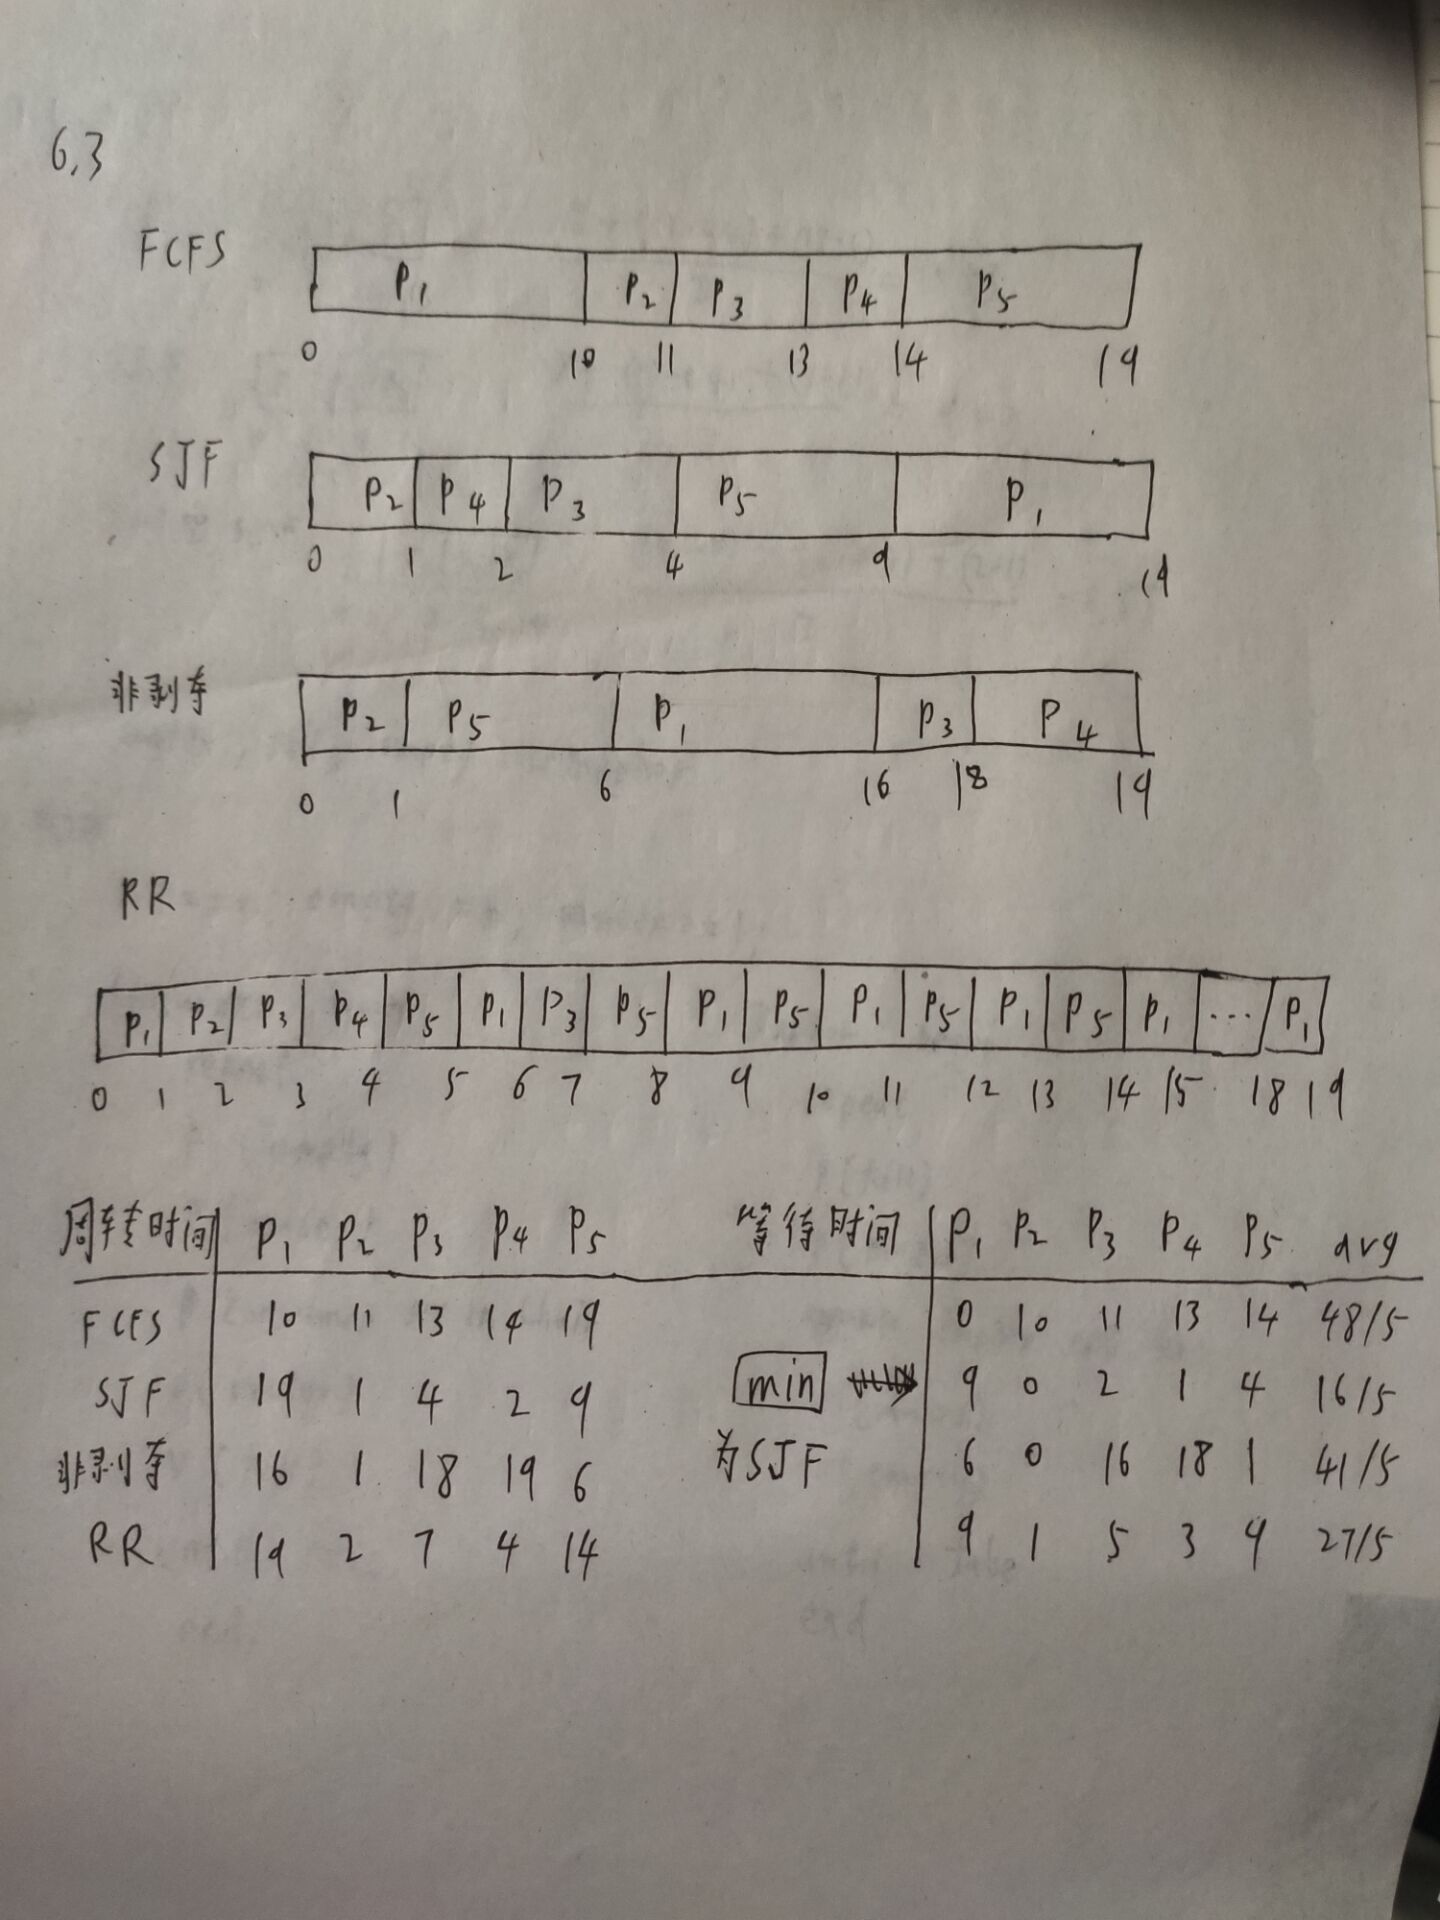 6.3
FCFS
P1 P2 P3 P4 P5
0 10 11 13 14 19
SJF
P2 P4 P3 P5 P1
0 1 2 4 9 19
非剥夺
P2 P5 P1 P3 P4
0 1 6 16 18 19
RR
P1 P2 P3 P4 P5 P1 P3 P5 P1 P5 P1 P5 P1 P5 P1 ... P1
0 1 2 3 4 5 6 7 8 9 10 11 12 13 14 15 18 19
周转时间 P1 P2 P3 P4 P5
FCFS 10 11 13 14 19
SJF 19 1 4 2 9
非剥夺 16 1 18 19 6
RR 19 2 7 4 14
等待时间 P1 P2 P3 P4 P5 avg
0 10 11 13 14 48/5
min 9 0 2 1 4 16/5
为SJF 6 0 16 18 1 41/5
9 1 5 3 9 27/5